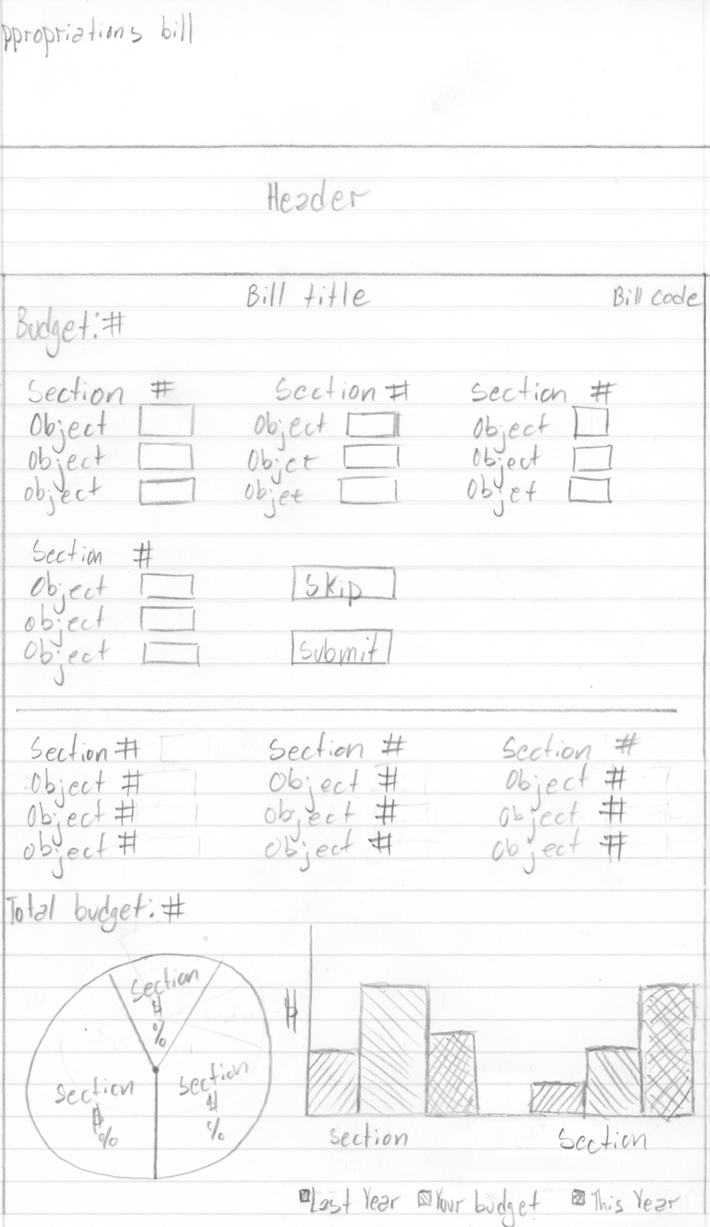 ppropriations bill
Header
Bill title Bill code
Budget: #
Section # Section # Section #
Object Object Object
Object Objet Object
Object Objet Objet
Section #
Object Skip
Object
Object Submit
Section # Section # Section #
Object # Object # Object #
Object # Object # Object #
Object # Object # Object #
Total budget: #
Section
$
%
Section
$
%
Section
$
%
$
Section Section
Last Year Your budget This Year